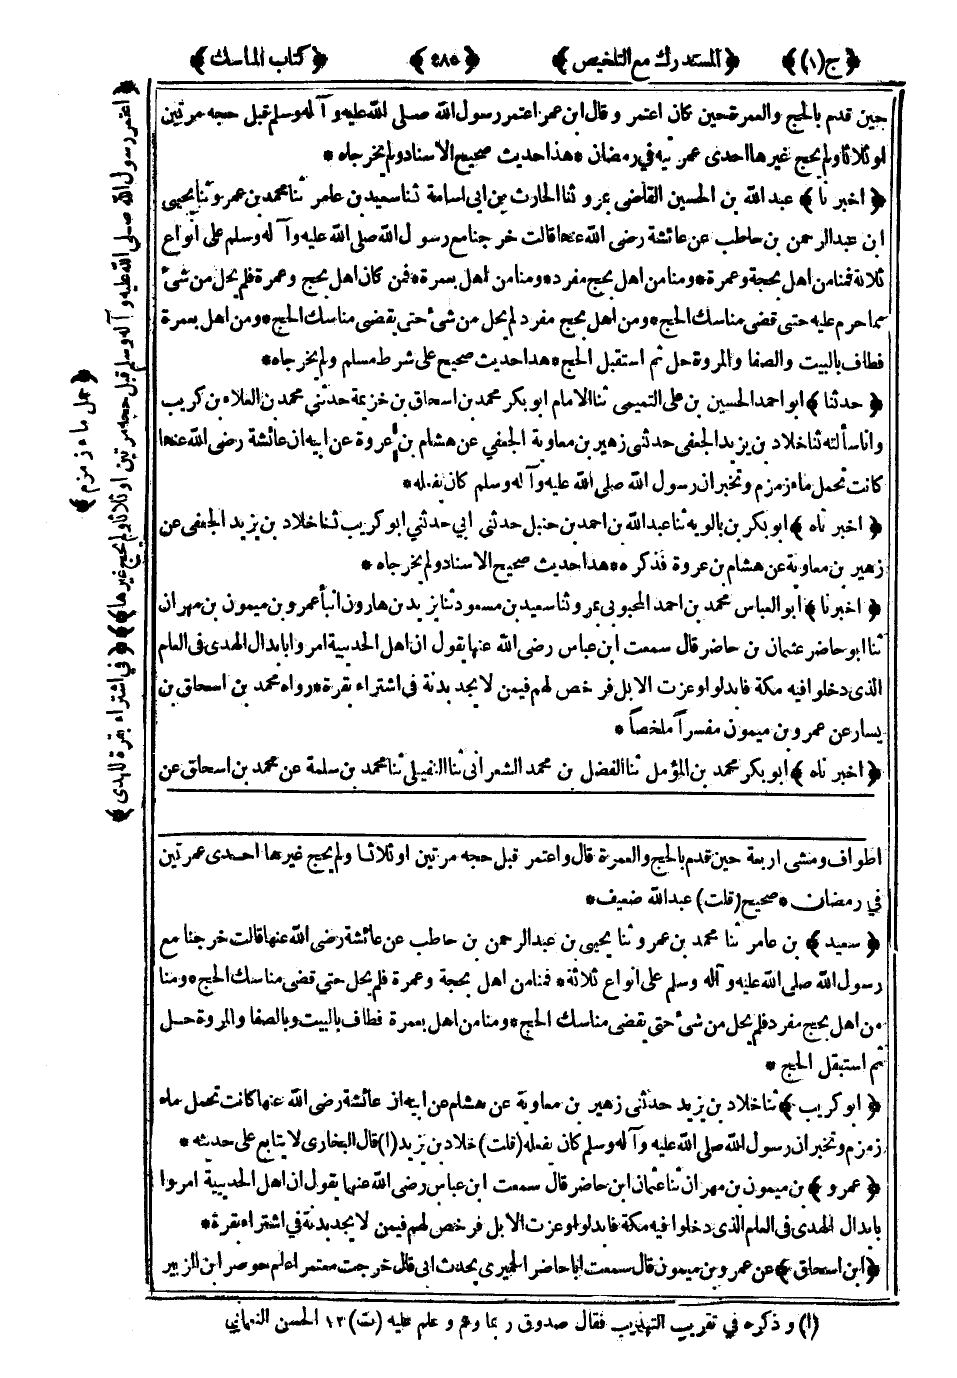 ﴿ ج (١) ﴾ ﴿ المستدرك مع التلخيص ﴾ ﴿ ٤٨٥ ﴾ ﴿ كتاب المناسك ﴾
حين قدم بالحج والعمرة حين كان اعتمر وقال ابن عمر اعتمر رسول الله صلى الله عليه وآله وسلم قبل حجه مرتين
او ثلاثا ولم يحج غيرها احدى عمرتيه في رمضان * هذا حديث صحيح الاسناد ولم يخرجاه *
﴿ اخبرنا ﴾ عبد الله بن الحسين القاضى بمرو ثنا الحارث بن ابى اسامة ثنا سعيد بن عامر ثنا محمد بن عمرو ثنا يحيى
ابن عبد الرحمن بن حاطب عن عائشة رضى الله عنها قالت خرجنا مع رسول الله صلى الله عليه وآله وسلم على انواع
ثلاثة فمنا من اهل بحجة وعمرة * ومنا من اهل بحج مفرد * ومنا من اهل بعمرة * فمن كان اهل بحج وعمرة فلم يحل من شئ
مما حرم عليه حتى قضى مناسك الحج * ومن اهل بحج مفرد لم يحل من شئ حتى يقضى مناسك الحج * ومن اهل بعمرة
فطاف بالبيت والصفا والمروة حل ثم استقبل الحج * هذا حديث صحيح على شرط مسلم ولم يخرجاه *
﴿ حدثنا ﴾ ابو احمد الحسين بن على التميمى ثنا الامام ابو بكر محمد بن اسحاق بن خزيمة حدثنى محمد بن العلاء بن كريب
وانا سألته ثنا خلاد بن يزيد الجعفى حدثنى زهير بن معاوية الجعفي عن هشام بن عروة عن ابيه ان عائشة رضى الله عنها
كانت تحمل ماء زمزم وتخبر ان رسول الله صلى الله عليه وآله وسلم كان يفعله *
﴿ اخبرناه ﴾ ابو بكر بن بالويه ثنا عبد الله بن احمد بن حنبل حدثنى ابي حدثني ابو كريب ثنا خلاد بن يزيد الجعفى عن
زهير بن معاوية عن هشام بن عروة فذكره * هذا حديث صحيح الاسناد ولم يخرجاه *
﴿ اخبرنا ﴾ ابو العباس محمد بن احمد المحبوبى بمرو ثنا سعيد بن مسعود ثنا يزيد بن هارون انبأ عمرو بن ميمون بن مهران
ثنا ابو حاضر عثمان بن حاضر قال سمعت ابن عباس رضى الله عنها يقول ان اهل الحديبية امروا بابدال الهدى فى العام
الذى دخلوا فيه مكة فابدلوا وعزت الابل فرخص لهم فيمن لا يجد بدنة فى اشتراء بقرة * رواه محمد بن اسحاق بن
يسار عن عمرو بن ميمون مفسراً ملخصاً *
﴿ اخبرناه ﴾ ابو بكر محمد بن المؤمل ثنا الفضل بن محمد الشعرانى ثنا النفيلى ثنا محمد بن سلمة عن محمد بن اسحاق عن
اطواف ومشى اربعة حين قدم بالحج والعمرة قال واعتمر قبل حجه مرتين اوثلاثا ولم يحج غيرها احدى عمرتين
في رمضان * صحيح (قلت) عبد الله ضعيف *
﴿ سعيد ﴾ بن عامر ثنا محمد بن عمرو ثنا يحيى بن عبد الرحمن بن حاطب عن عائشة رضى الله عنها قالت خرجنا مع
رسول الله صلى الله عليه وآله وسلم على انواع ثلاثة * فمنا من اهل بحجة وعمرة فلم يحل حتى قضى مناسك الحج * ومنا
من اهل بحج مفرد فلم يحل من شئ حتى يقضى مناسك الحج * ومنا من اهل بعمرة فطاف بالبيت وبالصفا والمروة حل
ثم استقبل الحج *
﴿ ابو كريب ﴾ ثنا خلاد بن يزيد حدثنى زهير بن معاوية عن هشام عن ابيه ان عائشة رضى الله عنها كانت تحمل ماء
زمزم وتخبر ان رسول الله صلى الله عليه وآله وسلم كان يفعله (قلت) خلاد بن يزيد (١) قال البخارى لا يتابع على حديثه *
﴿ عمرو ﴾ بن ميمون بن مهران ثنا عثمان ابن حاضر قال سمعت ابن عباس رضى الله عنها يقول ان اهل الحديبية امروا
بابدال الهدى فى العام الذى دخلوا فيه مكة فابدلوا وعزت الابل فرخص لهم فيمن لا يجد بدنة في اشتراء بقرة *
﴿ ابن اسحاق ﴾ عن عمرو بن ميمون قال سمعت ابا حاضر الحميرى يحدث ابى قال خرجت معتمرا عام حوصر ابن الزبير
(١) وذكره في تقريب التهذيب فقال صدوق ربما وهم و علم عليه (ت) ١٢ الحسن النعمانى
﴿ اعتمر رسول الله صلى الله عليه وآله وسلم قبل حجه مرتين او ثلاثا ولم يحج غيرها ﴾ ﴿ في اشتراء بقرة للهدى ﴾
﴿ حمل ماء زمزم ﴾